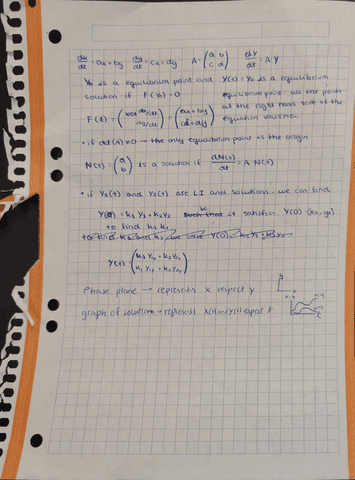 dx/dt = ax+by  dy/dt = cx+dy  A = (a b / c d)  dY/dt = A Y
Y₀ is a equilibrium point and Y(t) = Y₀ is a equilibrium
solution if F(Y₀) = 0
equilibrium point: all the points
F(Y) = (dx/dt / dy/dt) = (ax+by / cx+dy)
at the right hand side of the
equation vanishes
• if det(A)≠0 → the only equilibrium point is the origin
N(t) = (a / b) is a solution if dN(t)/dt = A·N(t)
• if Y₁(t) and Y₂(t) are LI and solutions, we can find
Y(t) = k₁Y₁ + k₂Y₂ so it satisfies Y(0) = (x₀, y₀)
to find k₁ k₂
Y(t) =
Phase plane → represents x respect y
graph of solutions → represent x(t) and y(t) respect t